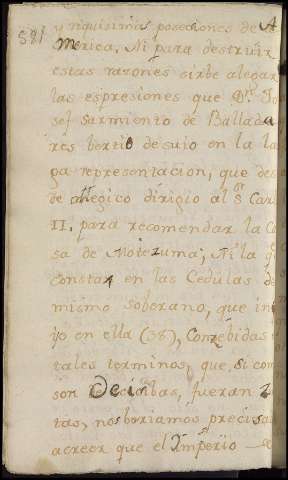 581
y riquisimas posesiones de A
merica. Ni para destruir
estas razones sirbe alegar
las espresiones que Dn. Jo
sef Sarmiento de Ballada
res bertió de suio en la la
ga representacion, que des
de Megico dirigió al Sr. Car
II. para recomendar la Ca
sa de Motezuma; Ni la q
constan en las Cedulas de
mismo soberano, que in
yo en ella (38), Conzebidas
tales terminos, que, si com
son decisibas, fueran
tas, nos beriamos precisa
acreer que el Imperio